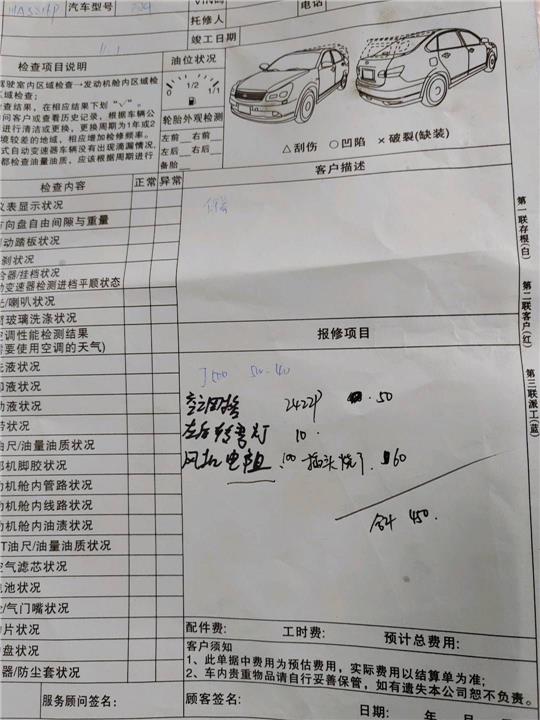 汽车型号
电话
托修人
竣工日期
检查项目说明
油位状况
驾驶室内区域检查→发动机舱内区域检
区域检查;
查结果,在相应结果下划"√"。
询问客户或查看历史记录,根据车辆公
进行清洁或更换,更换周期为1年或2
境较差的地域,相应增加检修频率。
式自动变速器车辆没有出现滴漏情况,
都检查油量油质,应该根据周期进行
1/2
1/1
轮胎外观检测
左前 右前
左后 右后
备胎
△刮伤 ○凹陷 ×破裂(缺装)
检查内容 正常 异常
客户描述
仪表显示状况
方向盘自由间隙与重量
制动踏板状况
刹状况
合器/挂档状况
动变速器检测进档平顺状态
光/喇叭状况
窗玻璃洗涤状况
空调性能检测结果
需要使用空调的天气)
报修项目
洗液状况
却液状况
动液状况
带状况
油尺/油量油质状况
部机脚胶状况
动机舱内管路状况
动机舱内线路状况
动机舱内油渍状况
T油尺/油量油质状况
空气滤芯状况
电池状况
/气门嘴状况
片状况
盘状况
器/防尘套状况
左后转弯灯 10
风机电阻 100 插头烧了 60
合计 450.
配件费: 工时费: 预计总费用:
客户须知
1、此单据中费用为预估费用,实际费用以结算单为准;
2、车内贵重物品请自行妥善保管,如有遗失本公司恕不负责。
服务顾问签名: 顾客签名: 日期: 年 月
第一联存根(白)
第二联客户(红)
第三联派工(蓝)